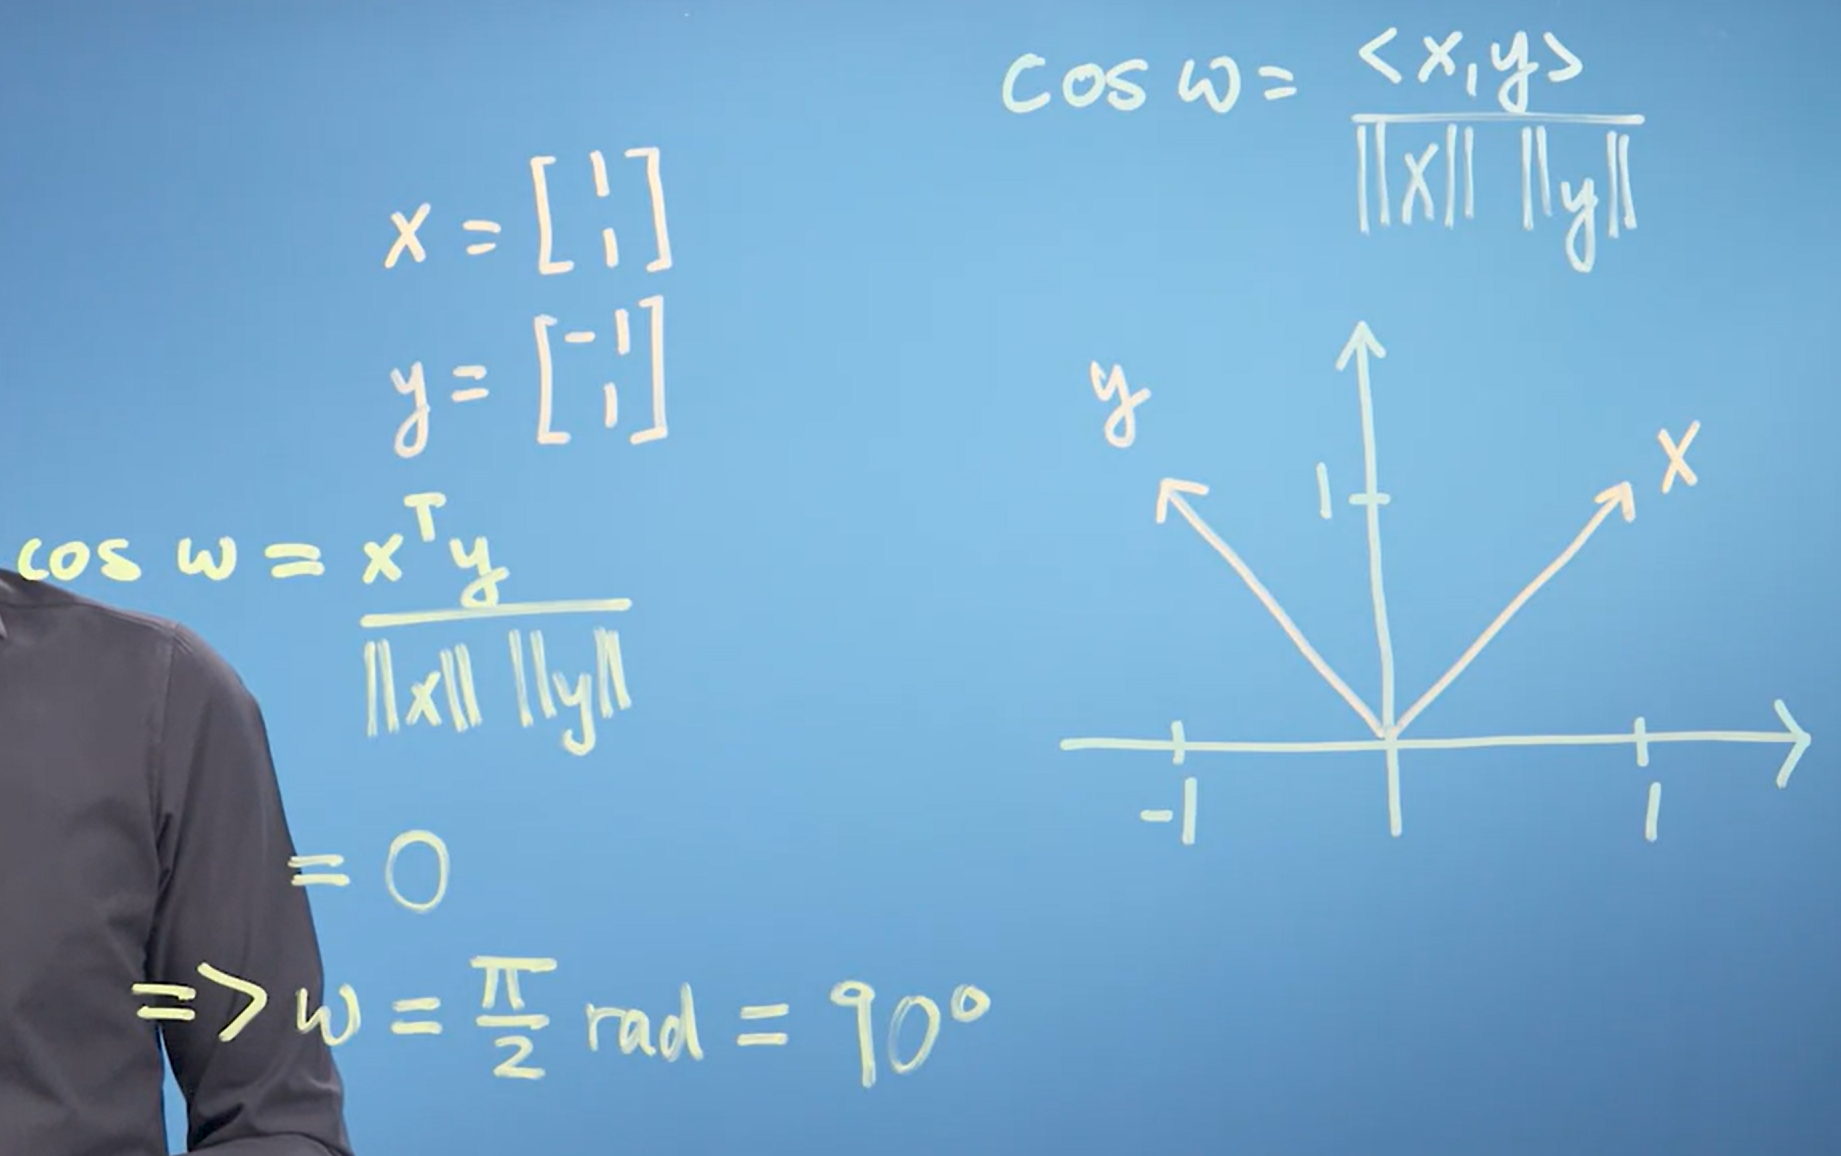 cos ω = <x,y>
||x|| ||y||
x = [1
1]
y = [-1
1]
cos ω = xᵀy
||x|| ||y||
= 0
=> ω = π/2 rad = 90°
y
x
1
-1
1